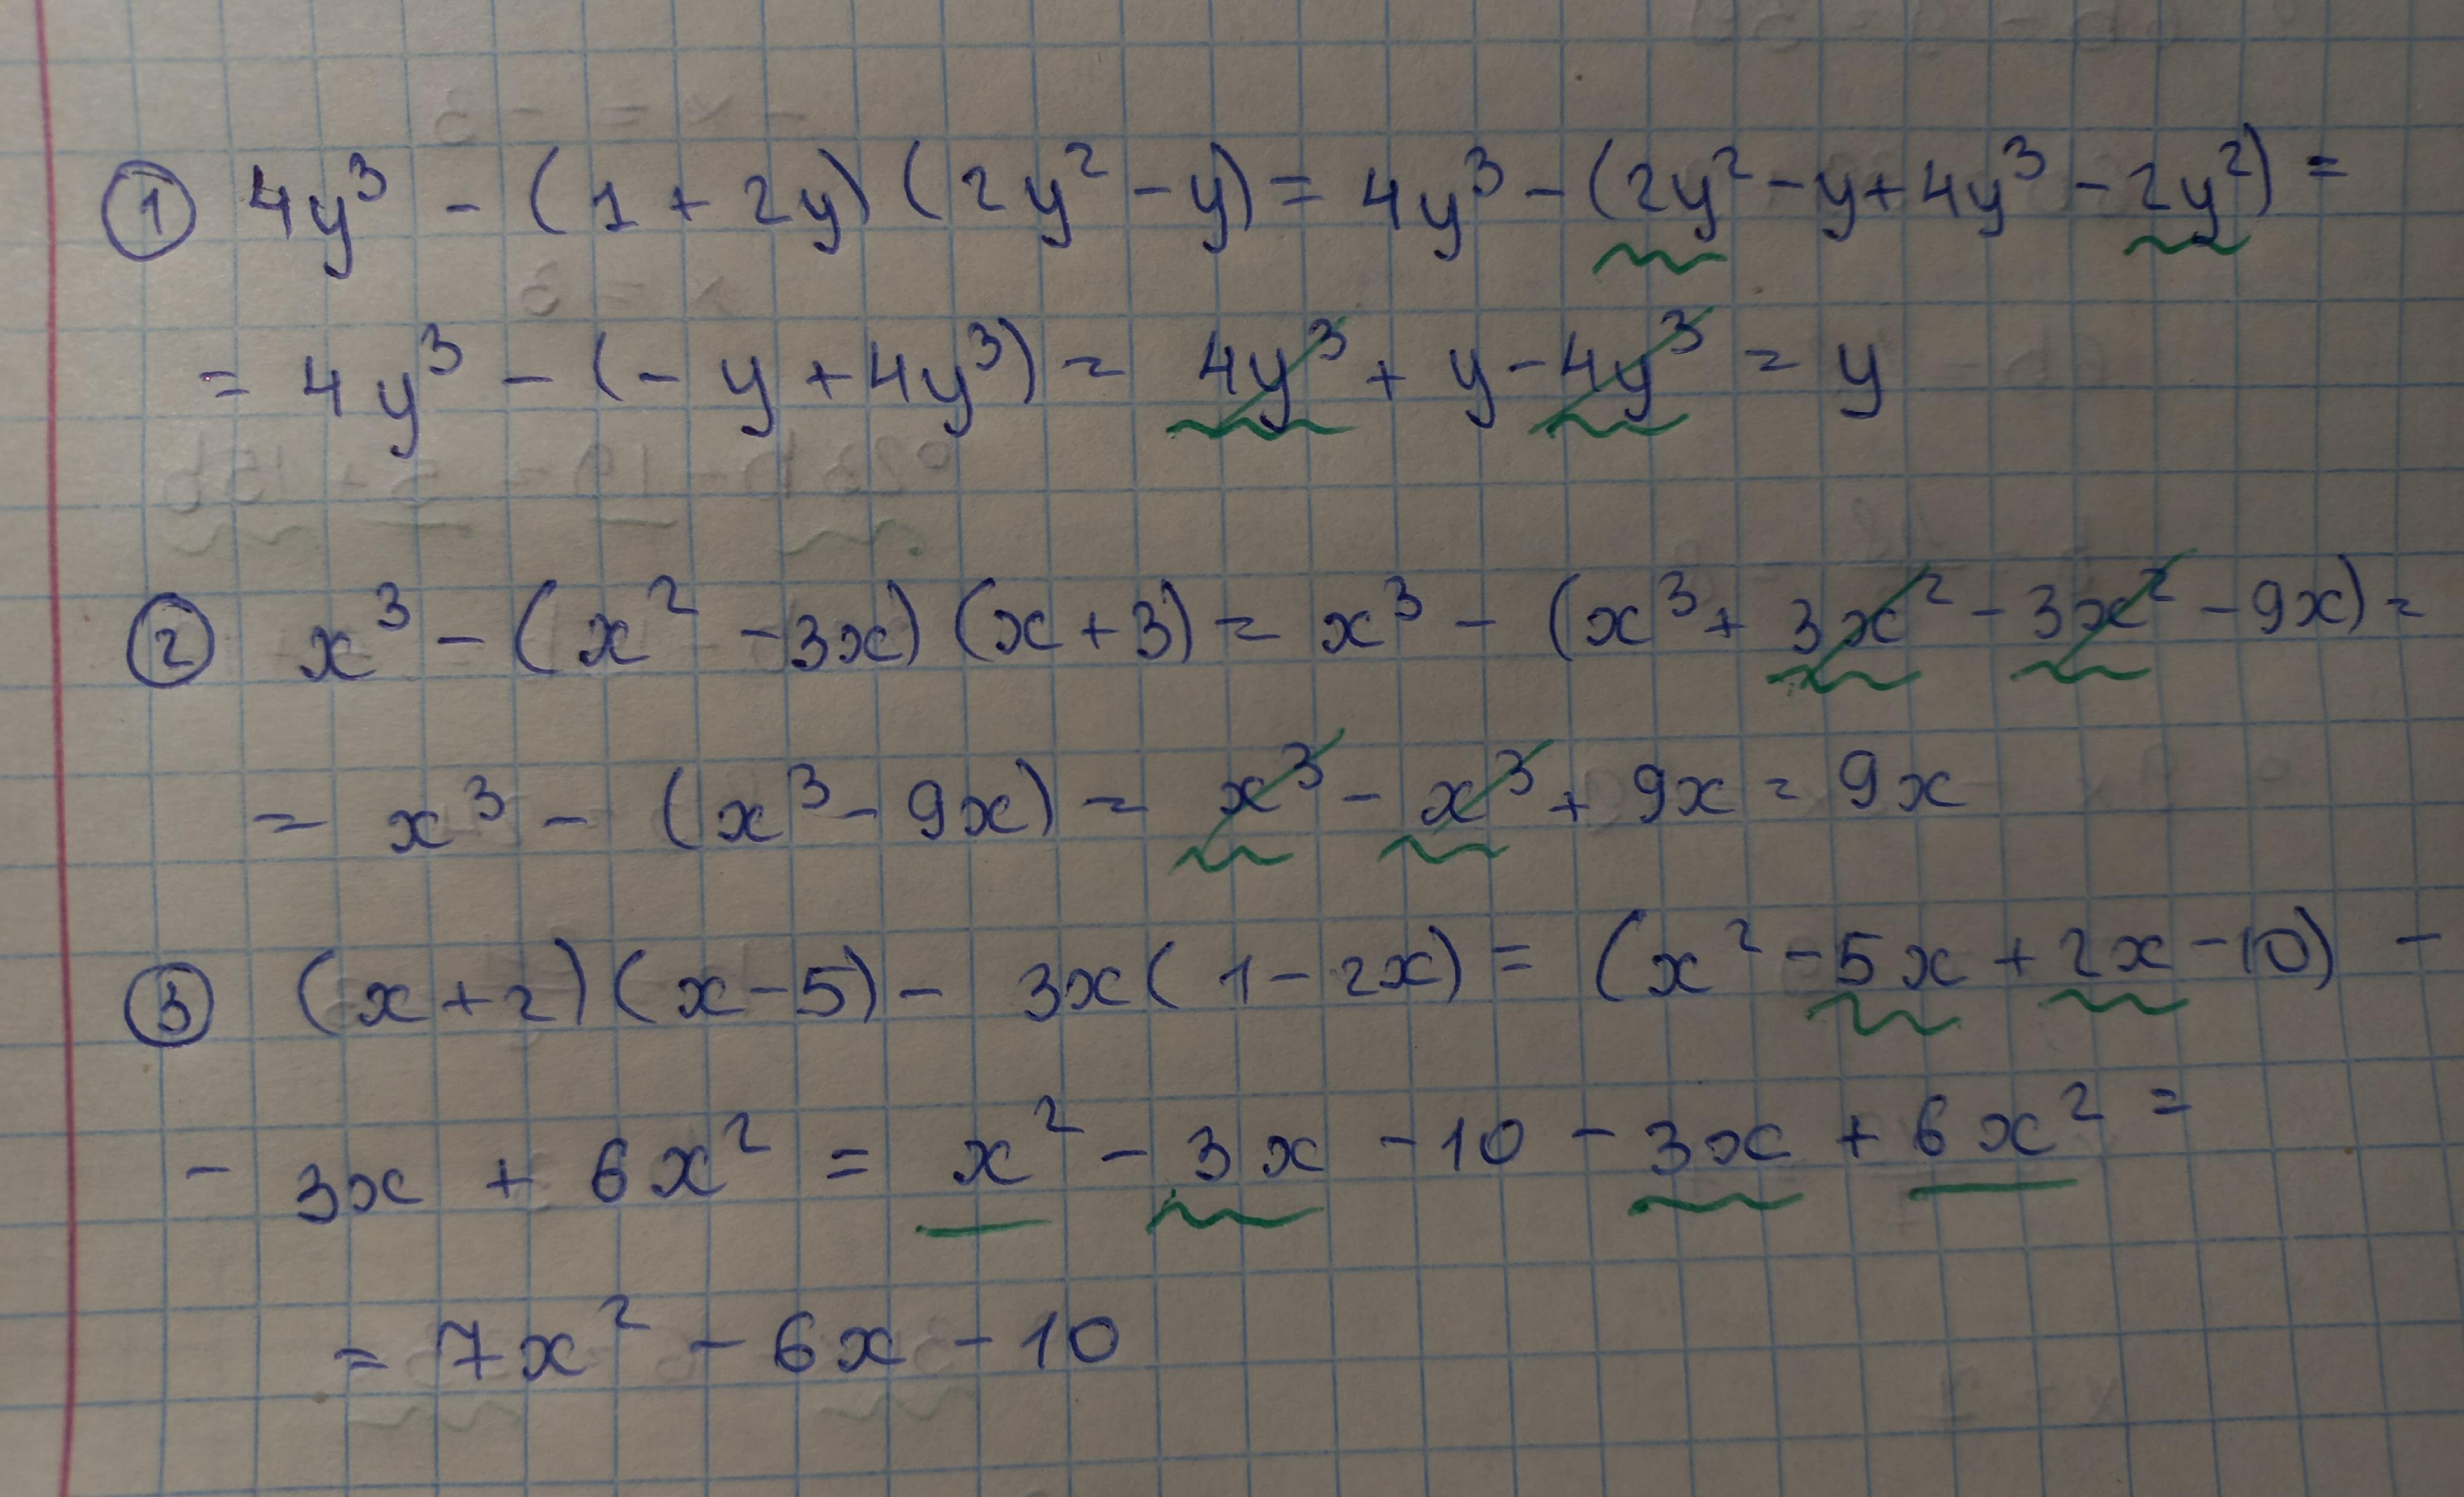 ① 4y³ - (1 + 2y)(2y² - y) = 4y³ - (2y² - y + 4y³ - 2y²) =
= 4y³ - (- y + 4y³) = 4y³ + y - 4y³ = y
② x³ - (x² - 3x)(x + 3) = x³ - (x³ + 3x² - 3x² - 9x) =
= x³ - (x³ - 9x) = x³ - x³ + 9x = 9x
③ (x + 2)(x - 5) - 3x(1 - 2x) = (x² - 5x + 2x - 10) -
- 3x + 6x² = x² - 3x - 10 - 3x + 6x² =
= 7x² - 6x - 10